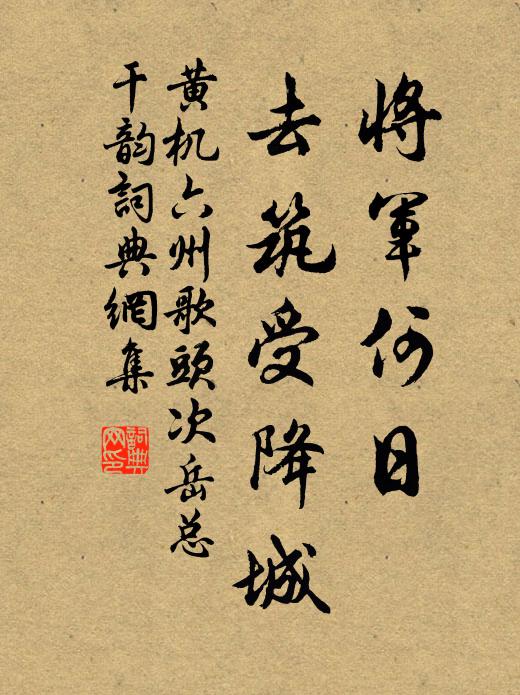 將軍何日
去筑受降城
黄机六州歌頭次岳总
干韵詞典網集
詞典
网印